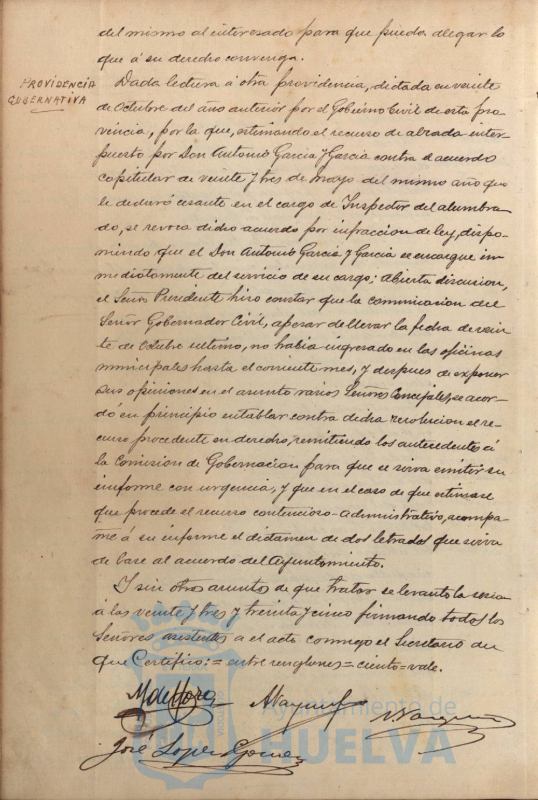 del mismo al interesado para que pueda alegar lo
que á su derecho convenga.
PROVIDENCIA
GUBERNATIVA
Dada lectura á otra providencia, dictada en veinte
de Octubre del año anterior por el Gobierno Civil de esta pro
vincia, por la que, estimando el recurso de alzada inter-
puesto por Don Antonio Garcia y Garcia contra el acuerdo
capitular de veinte y tres de Mayo del mismo año que
le declaró cesante en el cargo de Inspector del alumbra
do, se revoca dicho acuerdo por infraccion de ley, dispo-
niendo que el Don Antonio Garcia y Garcia se encargue in
mediatamente del servicio de su cargo; abierta discusion,
el Señor Presidente hizo constar que la comunicacion del
Señor Gobernador Civil, apesar de llevar la fecha de vein
te de Octubre último, no habia ingresado en las oficinas
municipales hasta el corriente mes, y despues de exponer
sus opiniones en el asunto varios Señores Concejales, se acor-
dó en principio entablar contra dicha resolucion el re-
curso procedente en derecho, remitiendo los antecedentes á
la Comision de Gobernacion para que se sirva emitir su
informe con urgencia, y que en el caso de que estimase
que procede el recurso contencioso-administrativo, acompa-
ñe á su informe el dictamen de dos letrados que sirva
de base al acuerdo del Ayuntamiento.
Y sin otros asuntos de que tratar se levantó la sesion
á las veinte y tres y treinta y cinco firmando todos los
Señores asistentes a el acto conmigo el Secretario de
que Certifico: = entre renglones = ciento = vale.
José Lopez Gomez
Ayuntamiento de
HUELVA